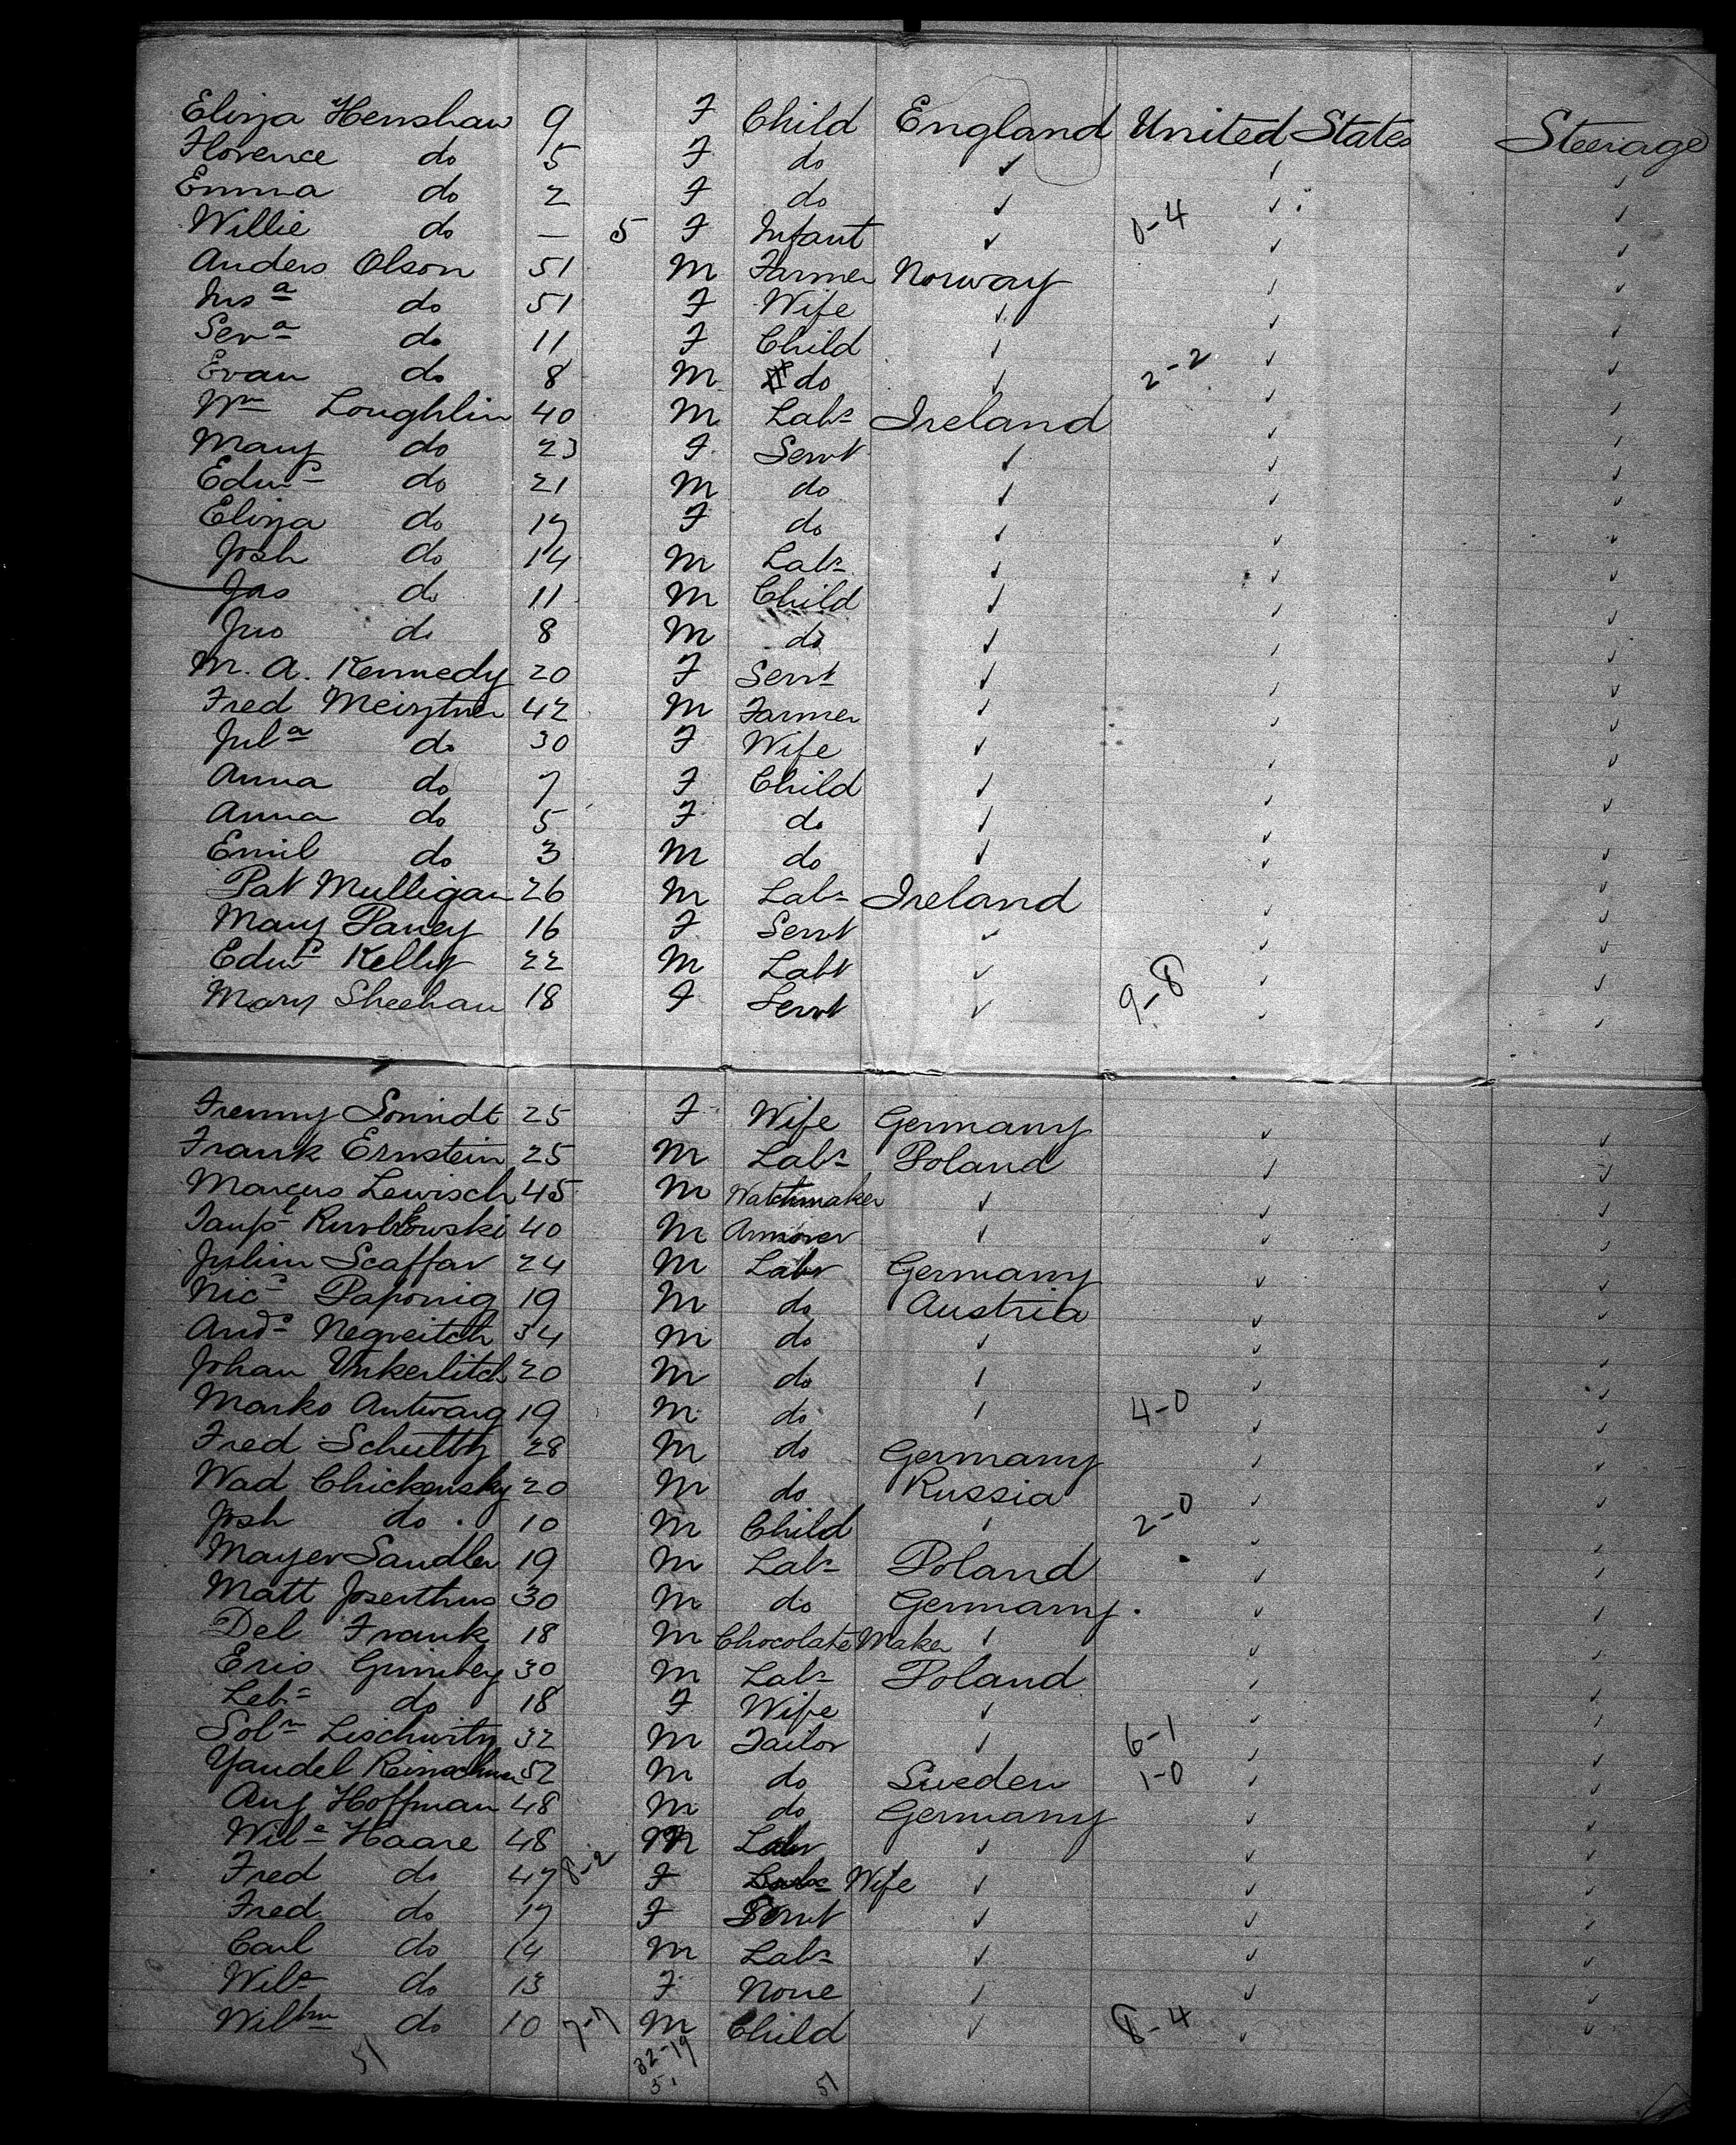 Eliza Henshaw 9 F Child England United States Steerage
Florence do 5 F do ✓ ✓ ✓
Emma do 2 F do ✓ ✓ ✓
Willie do — 5 F Infant ✓ 0-4 ✓ ✓
Anders Olson 51 M Farmer Norway ✓ ✓
Ins a do 51 F Wife ✓ ✓ ✓
Sev a do 11 F Child ✓ ✓ ✓
Evan do 8 M do ✓ 2-2 ✓ ✓
Wm Loughlin 40 M Labr Ireland ✓ ✓
Mary do 23 F Servt ✓ ✓ ✓
Edwd do 21 M do ✓ ✓ ✓
Eliza do 17 F do ✓ ✓ ✓
Josh do 14 M Labr ✓ ✓ ✓
Jas do 11 M Child ✓ ✓ ✓
Jno do 8 M do ✓ ✓ ✓
M. A. Kennedy 20 F Servt ✓ ✓ ✓
Fred Meisztner 42 M Farmer ✓ ✓ ✓
Jula do 30 F Wife ✓ ✓ ✓
Anna do 7 F Child ✓ ✓ ✓
Anna do 5 F do ✓ ✓ ✓
Emil do 3 M do ✓ ✓ ✓
Pat Mulligan 26 M Labr Ireland ✓ ✓
Mary Paney 16 F Servt ✓ ✓ ✓
Edwd Kelly 22 M Labr ✓ ✓ ✓
Mary Sheehan 18 F Servt ✓ 9-8 ✓ ✓
Frenny Somidt 25 F Wife Germany ✓ ✓
Frank Ernstein 25 M Labr Poland ✓ ✓
Marcus Lewisch 45 M Watchmaker ✓ ✓ ✓
40 M Armorer ✓ ✓ ✓
Julim Scaffar 24 M Labr Germany ✓ ✓
Nics Paponig 19 M do Austria ✓ ✓
Ands Negreitch 34 M do ✓ ✓ ✓
Johan Unkerlitch 20 M do ✓ ✓ ✓
Marko Antwarg 19 M do ✓ 4-0 ✓ ✓
Fred Schultz 28 M do Germany ✓ ✓
Wad Chickensky 20 M do Russia ✓ ✓
Josh do 10 M Child ✓ 2-0 ✓ ✓
Mayer Sandler 19 M Labr Poland ✓ ✓
Matt Joserthus 30 M do Germany ✓ ✓
Del Frank 18 M Chocolate Maker ✓ ✓ ✓
Eris Gumbey 30 M Labr Poland ✓ ✓
Leba do 18 F Wife ✓ ✓ ✓
Soln Lischwitz 32 M Tailor ✓ 6-1 ✓ ✓
Yandel 52 M do Sweden 1-0 ✓ ✓
Aug Hoffman 48 M do Germany ✓ ✓
Wila Haare 48 M Labr ✓ ✓ ✓
Fred do 47 8-2 F Wife ✓ ✓ ✓
Fred do 17 F Servt ✓ ✓ ✓
Carl do 14 M Labr ✓ ✓ ✓
Wila do 13 F None ✓ ✓ ✓
Wilhm do 10 7-7 M Child ✓ 8-4 ✓ ✓
51 32-19 51
51